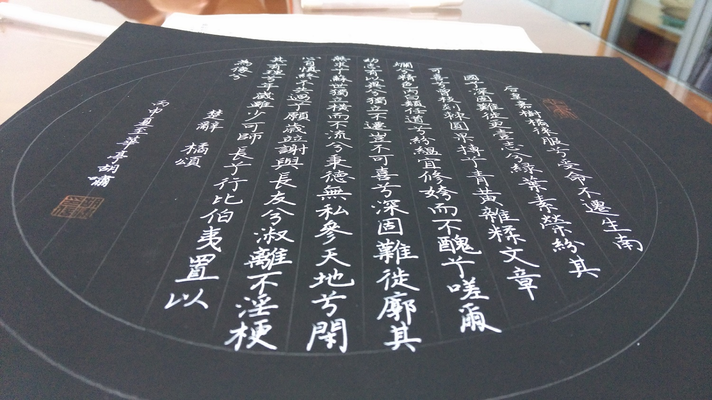 后皇嘉樹橘徠服兮受命不遷生南
國兮深固難徙更壹志兮綠葉素榮紛其
可喜兮曾枝剡棘圓果摶兮青黃雜糅文章
爛兮精色內白類任道兮紛縕宜修姱而不醜兮嗟爾
幼志有以異兮獨立不遷豈不可喜兮深固難徙廓其
無求兮蘇世獨立橫而不流兮秉德無私參天地兮閉
心自慎終不失過兮願歲竝謝與長友兮淑離不淫梗
其有理兮年歲雖少可師長兮行比伯夷置以
為像兮
楚辭 橘頌
丙申夏玉 胡嘯